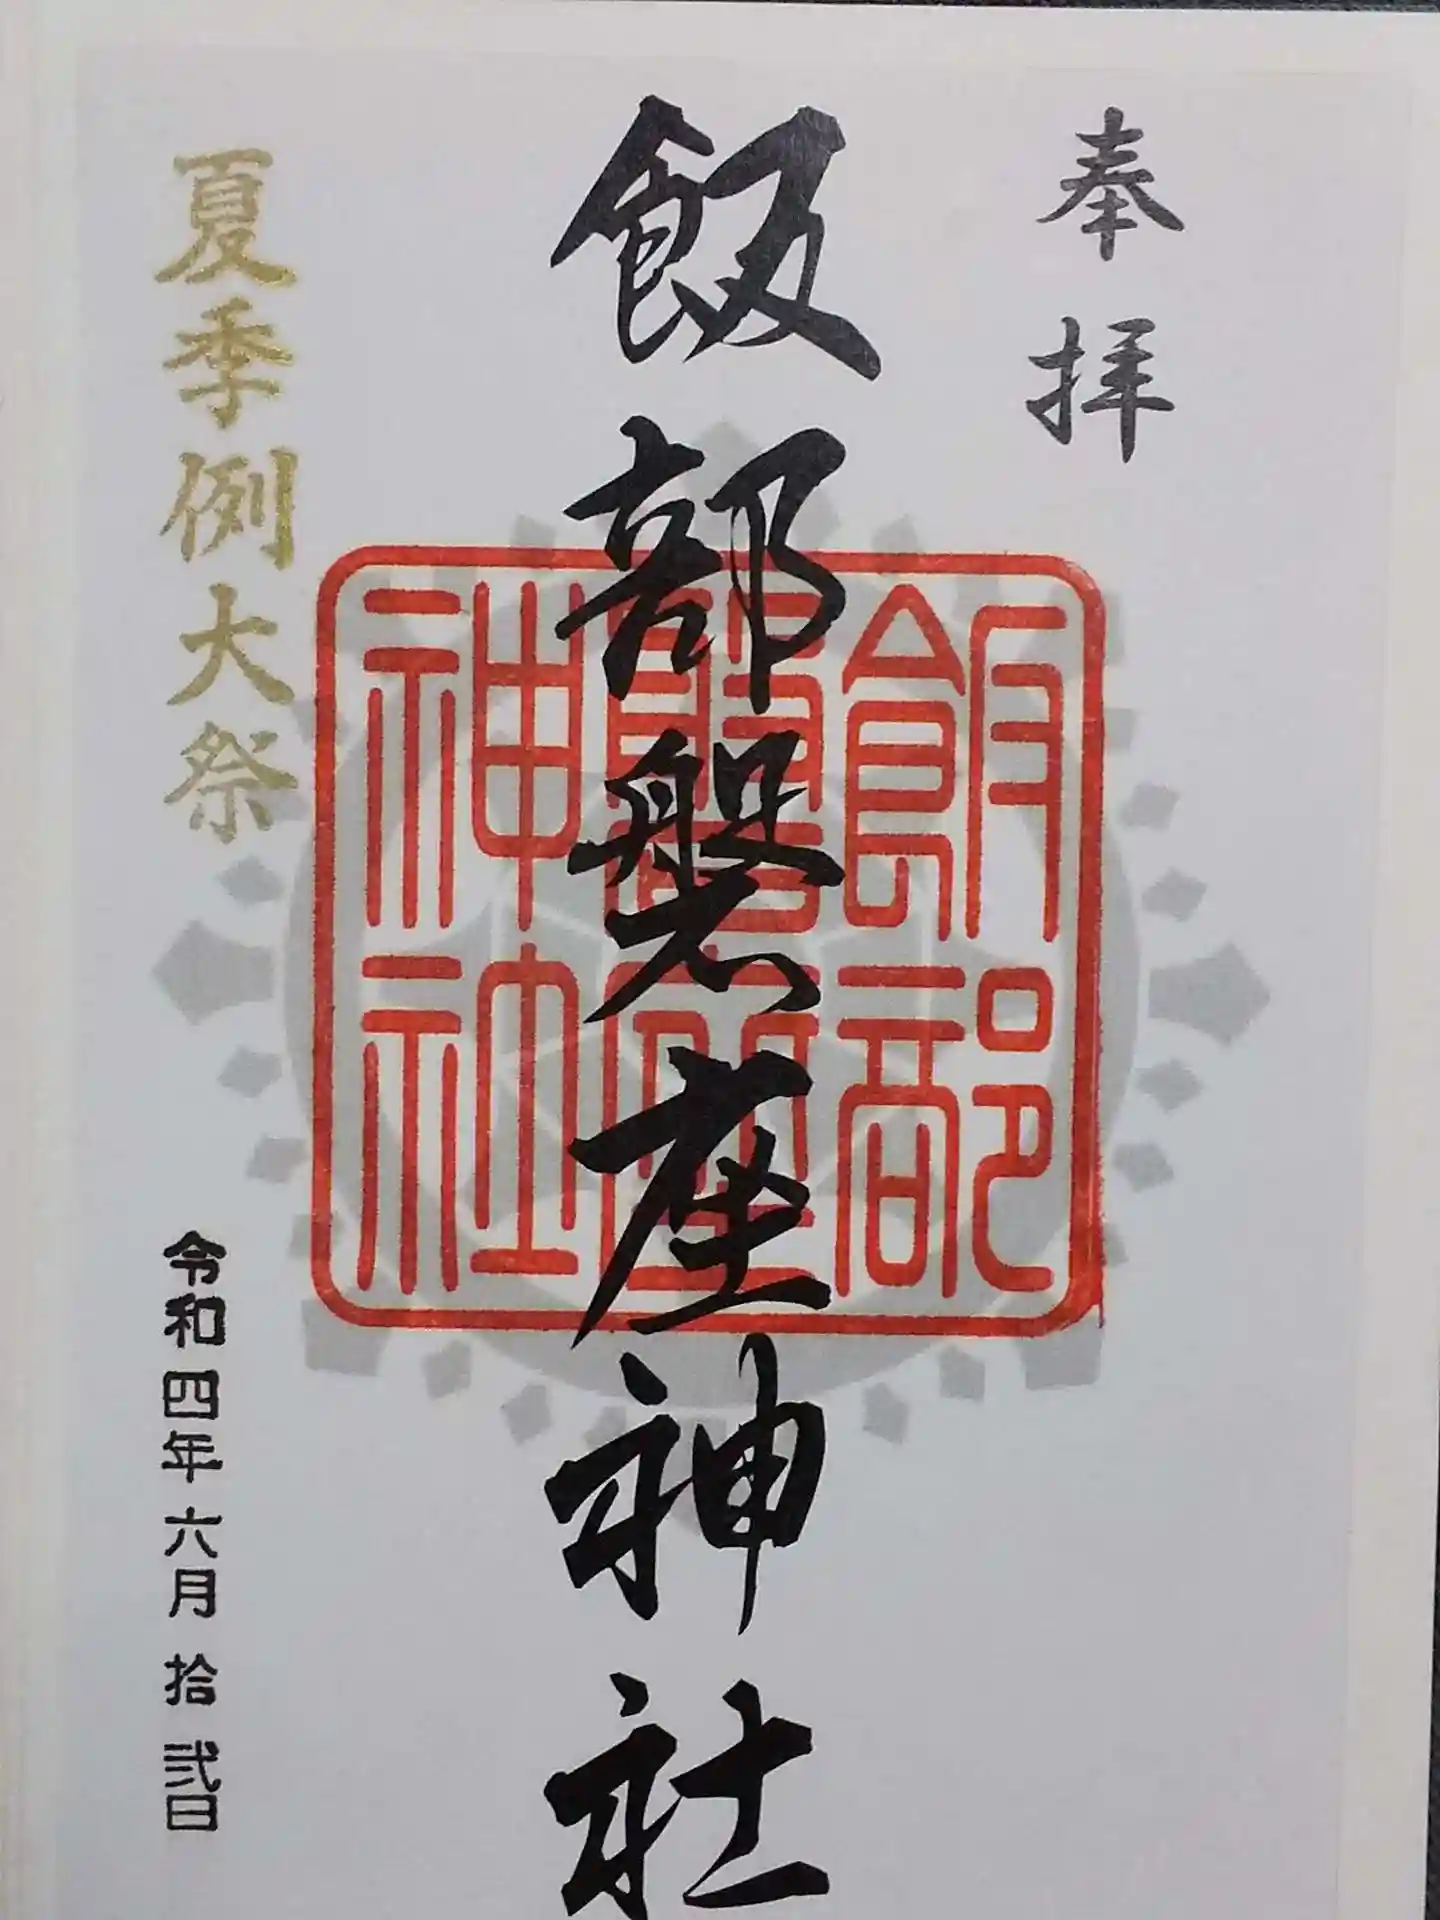 奉拝
飯部磐座神社
飯部
磐座
神社
夏季例大祭
令和四年六月拾弐日